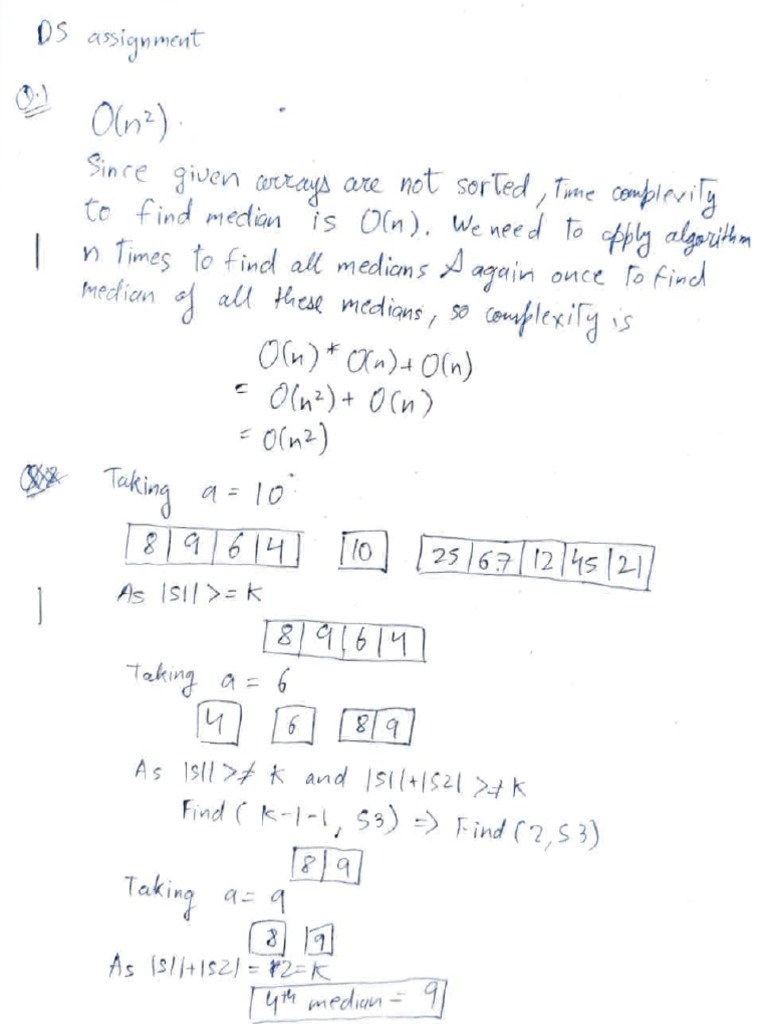 DS assignment
Q.1)
O(n²).
Since given arrays are not sorted, Time complexity
to find median is O(n). We need to apply algorithm
n Times to find all medians & again once to find
median of all these medians, so complexity is
O(n) * O(n) + O(n)
= O(n²) + O(n)
= O(n²)
Taking a = 10
8 9 6 4 10 25 67 12 45 21
As |S1| >= K
8 9 6 4
Taking a = 6
4 6 8 9
As |S1| >≠ K and |S1|+|S2| >≠ K
Find (K-1-1, S3) => Find (2, S3)
8 9
Taking a = 9
8 9
As |S1|+|S2| = 2 = K
4th median = 9